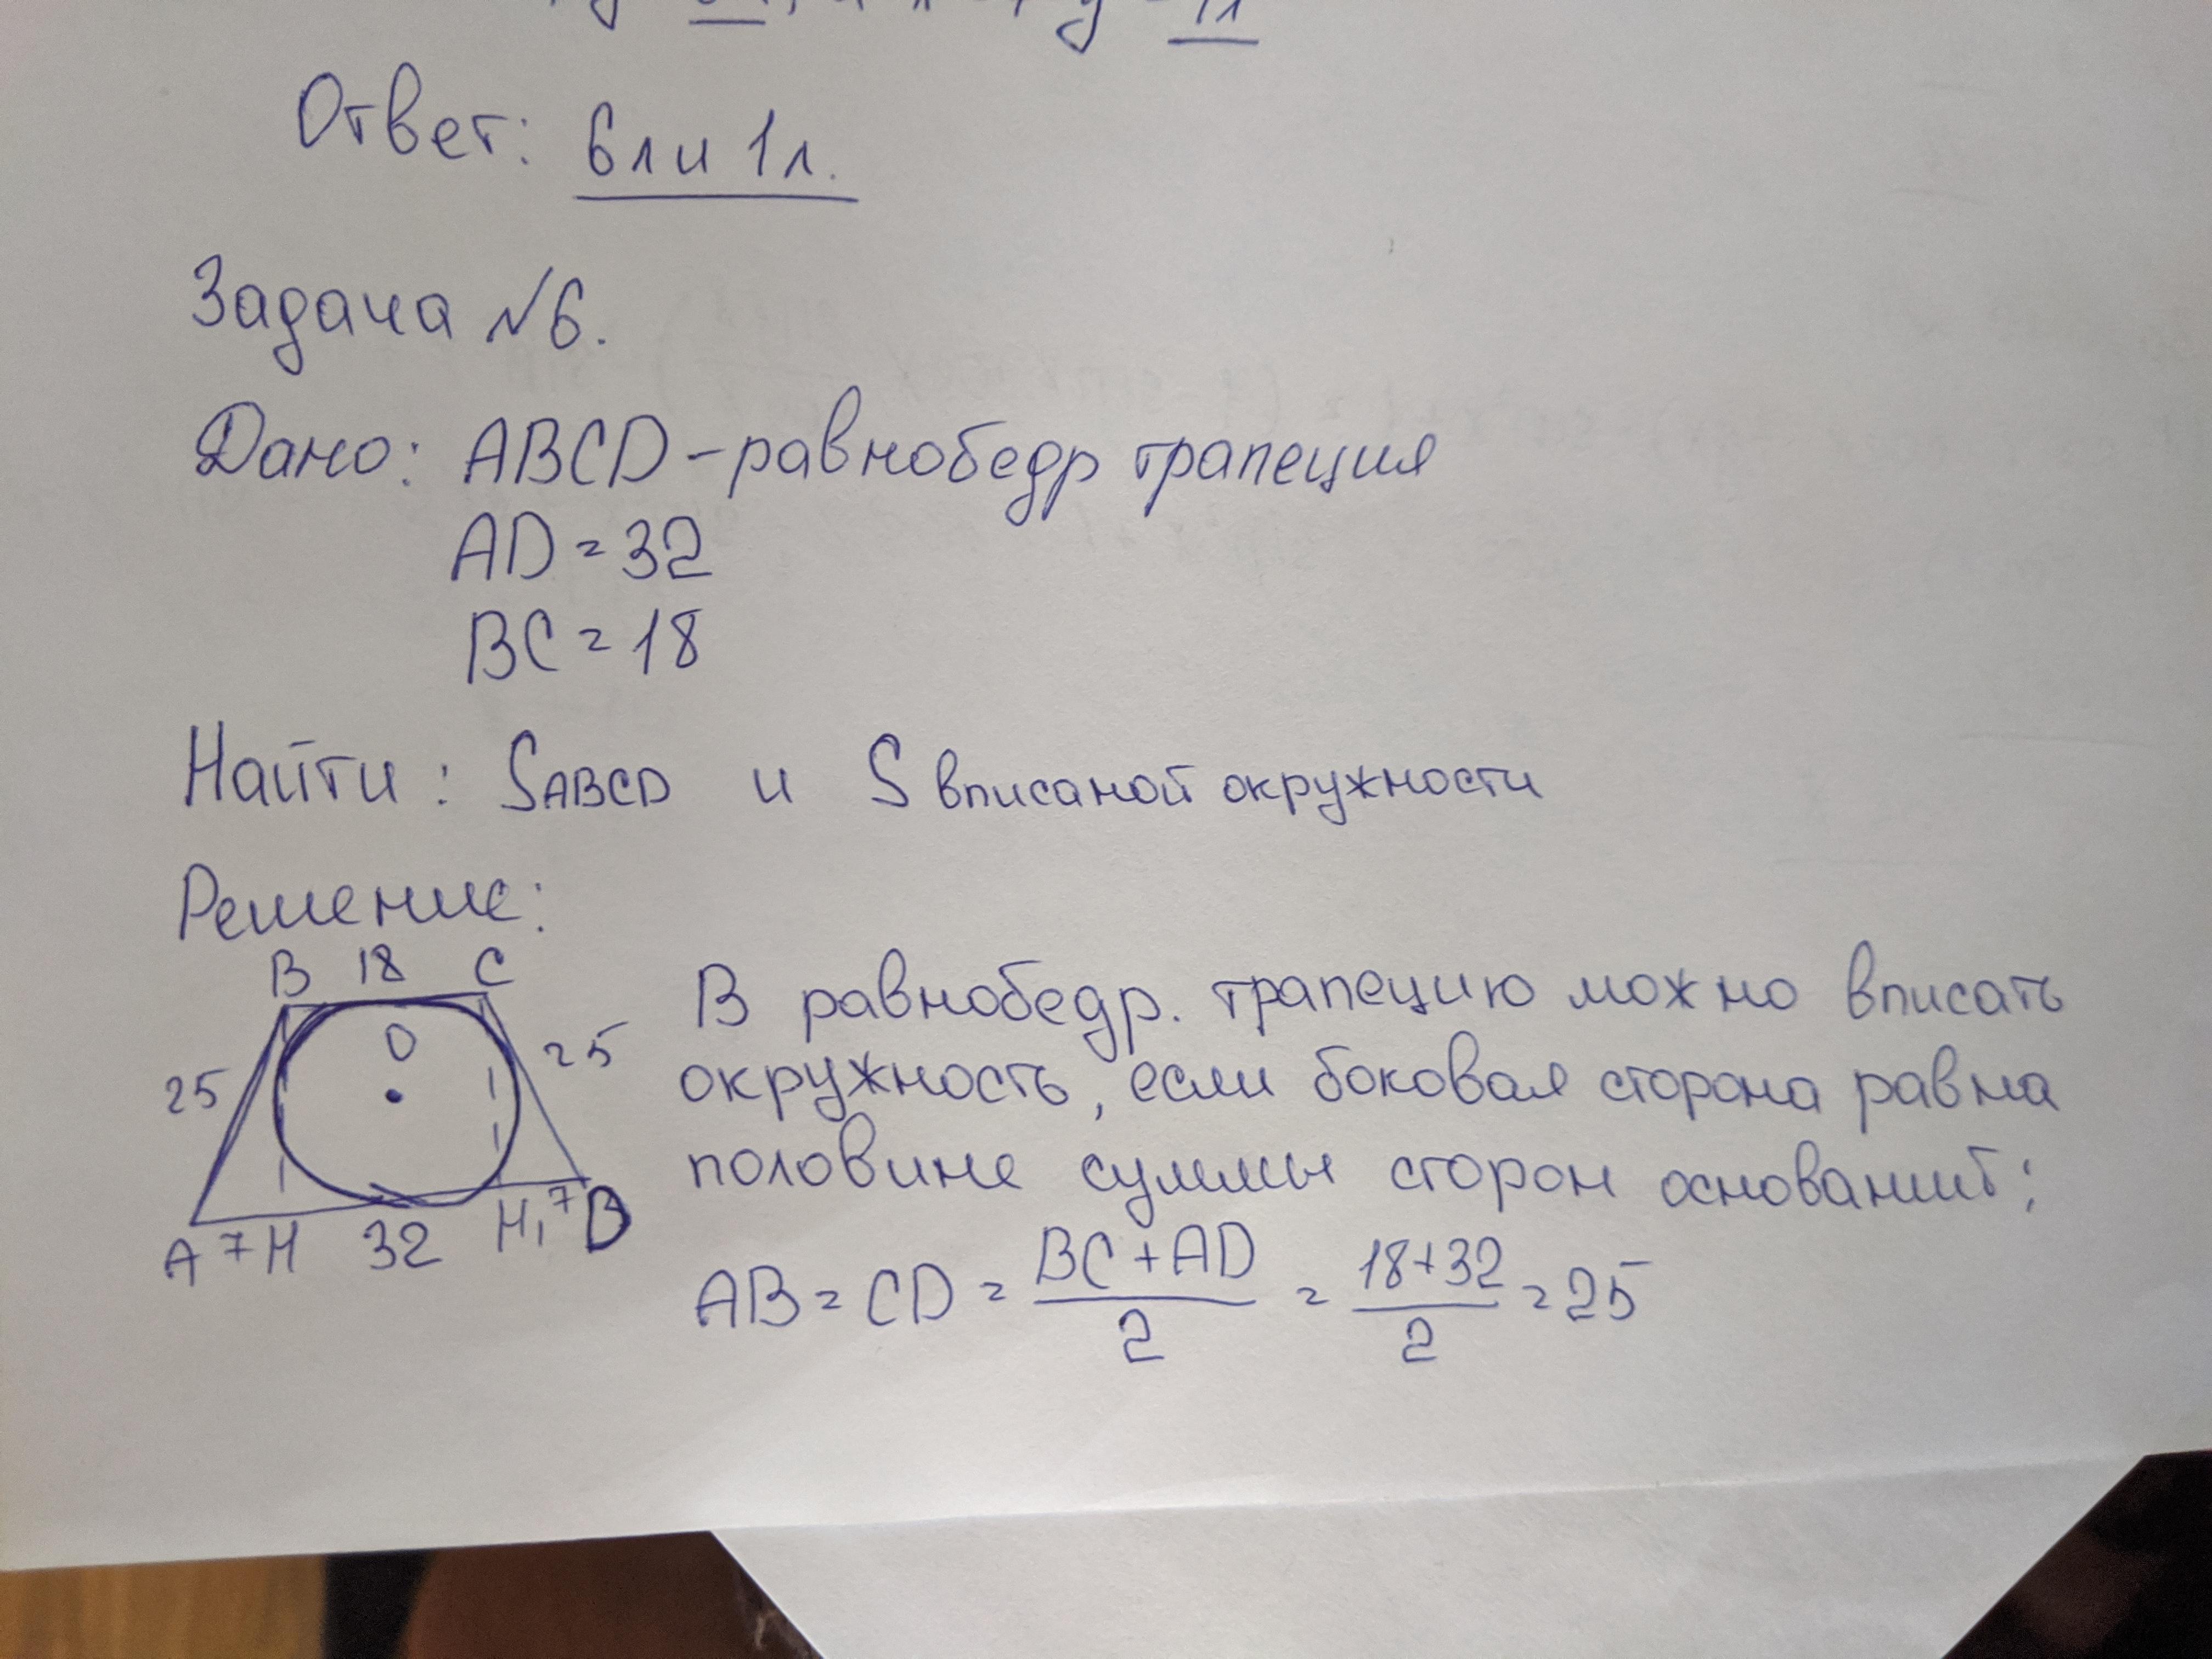 Ответ: 6л и 1л.
Задача №6.
Дано: ABCD – равнобедр трапеция
AD = 32
BC = 18
Найти: SABCD и S вписаной окружности
Решение:
B 18 C
O
25 25
A 7 H 32 H₁ 7 D
В равнобедр. трапецию можно вписать
окружность, если боковая сторона равна
половине суммы сторон оснований;
AB = CD = (BC + AD)/2 = (18+32)/2 = 25